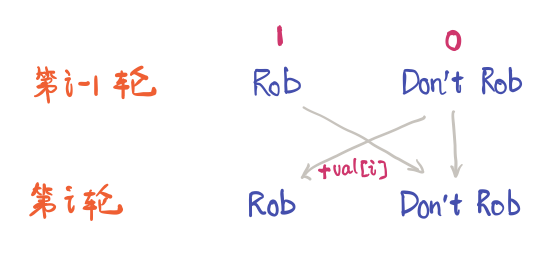 1 0
第i-1轮 Rob Don't Rob
+val[i]
第i轮 Rob Don't Rob